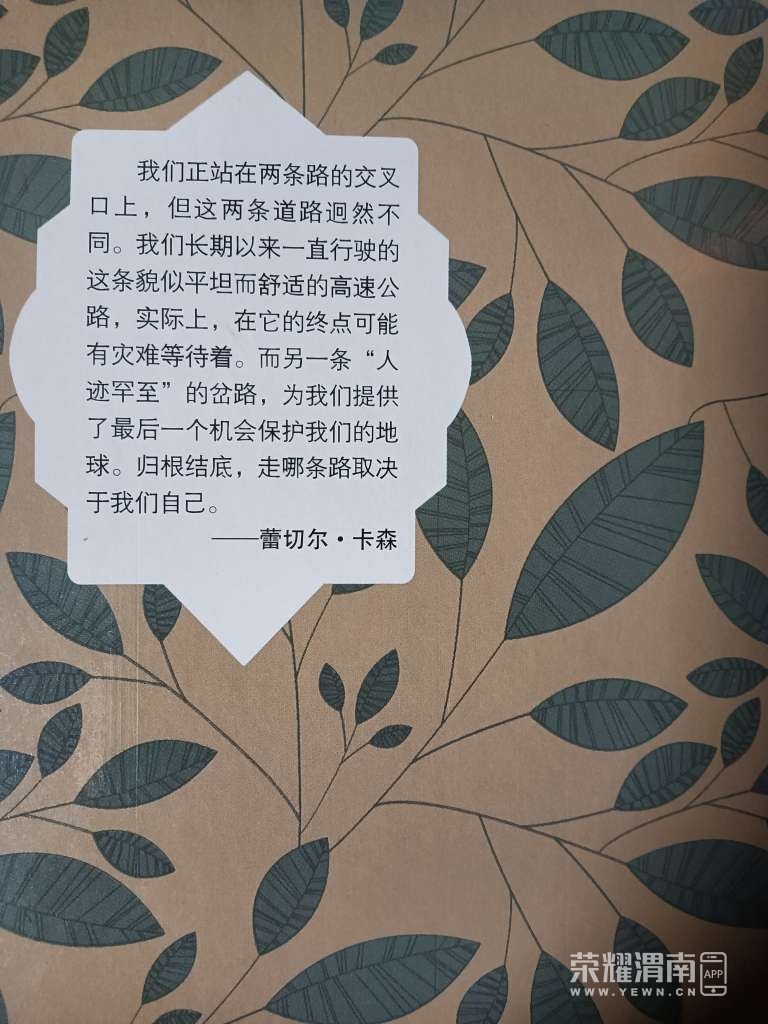 我们正站在两条路的交叉
口上，但这两条道路迥然不
同。我们长期以来一直行驶的
这条貌似平坦而舒适的高速公
路，实际上，在它的终点可能
有灾难等待着。而另一条“人
迹罕至”的岔路，为我们提供
了最后一个机会保护我们的地
球。归根结底，走哪条路取决
于我们自己。
——蕾切尔·卡森
荣耀渭南 APP
WWW.YEWN.CN